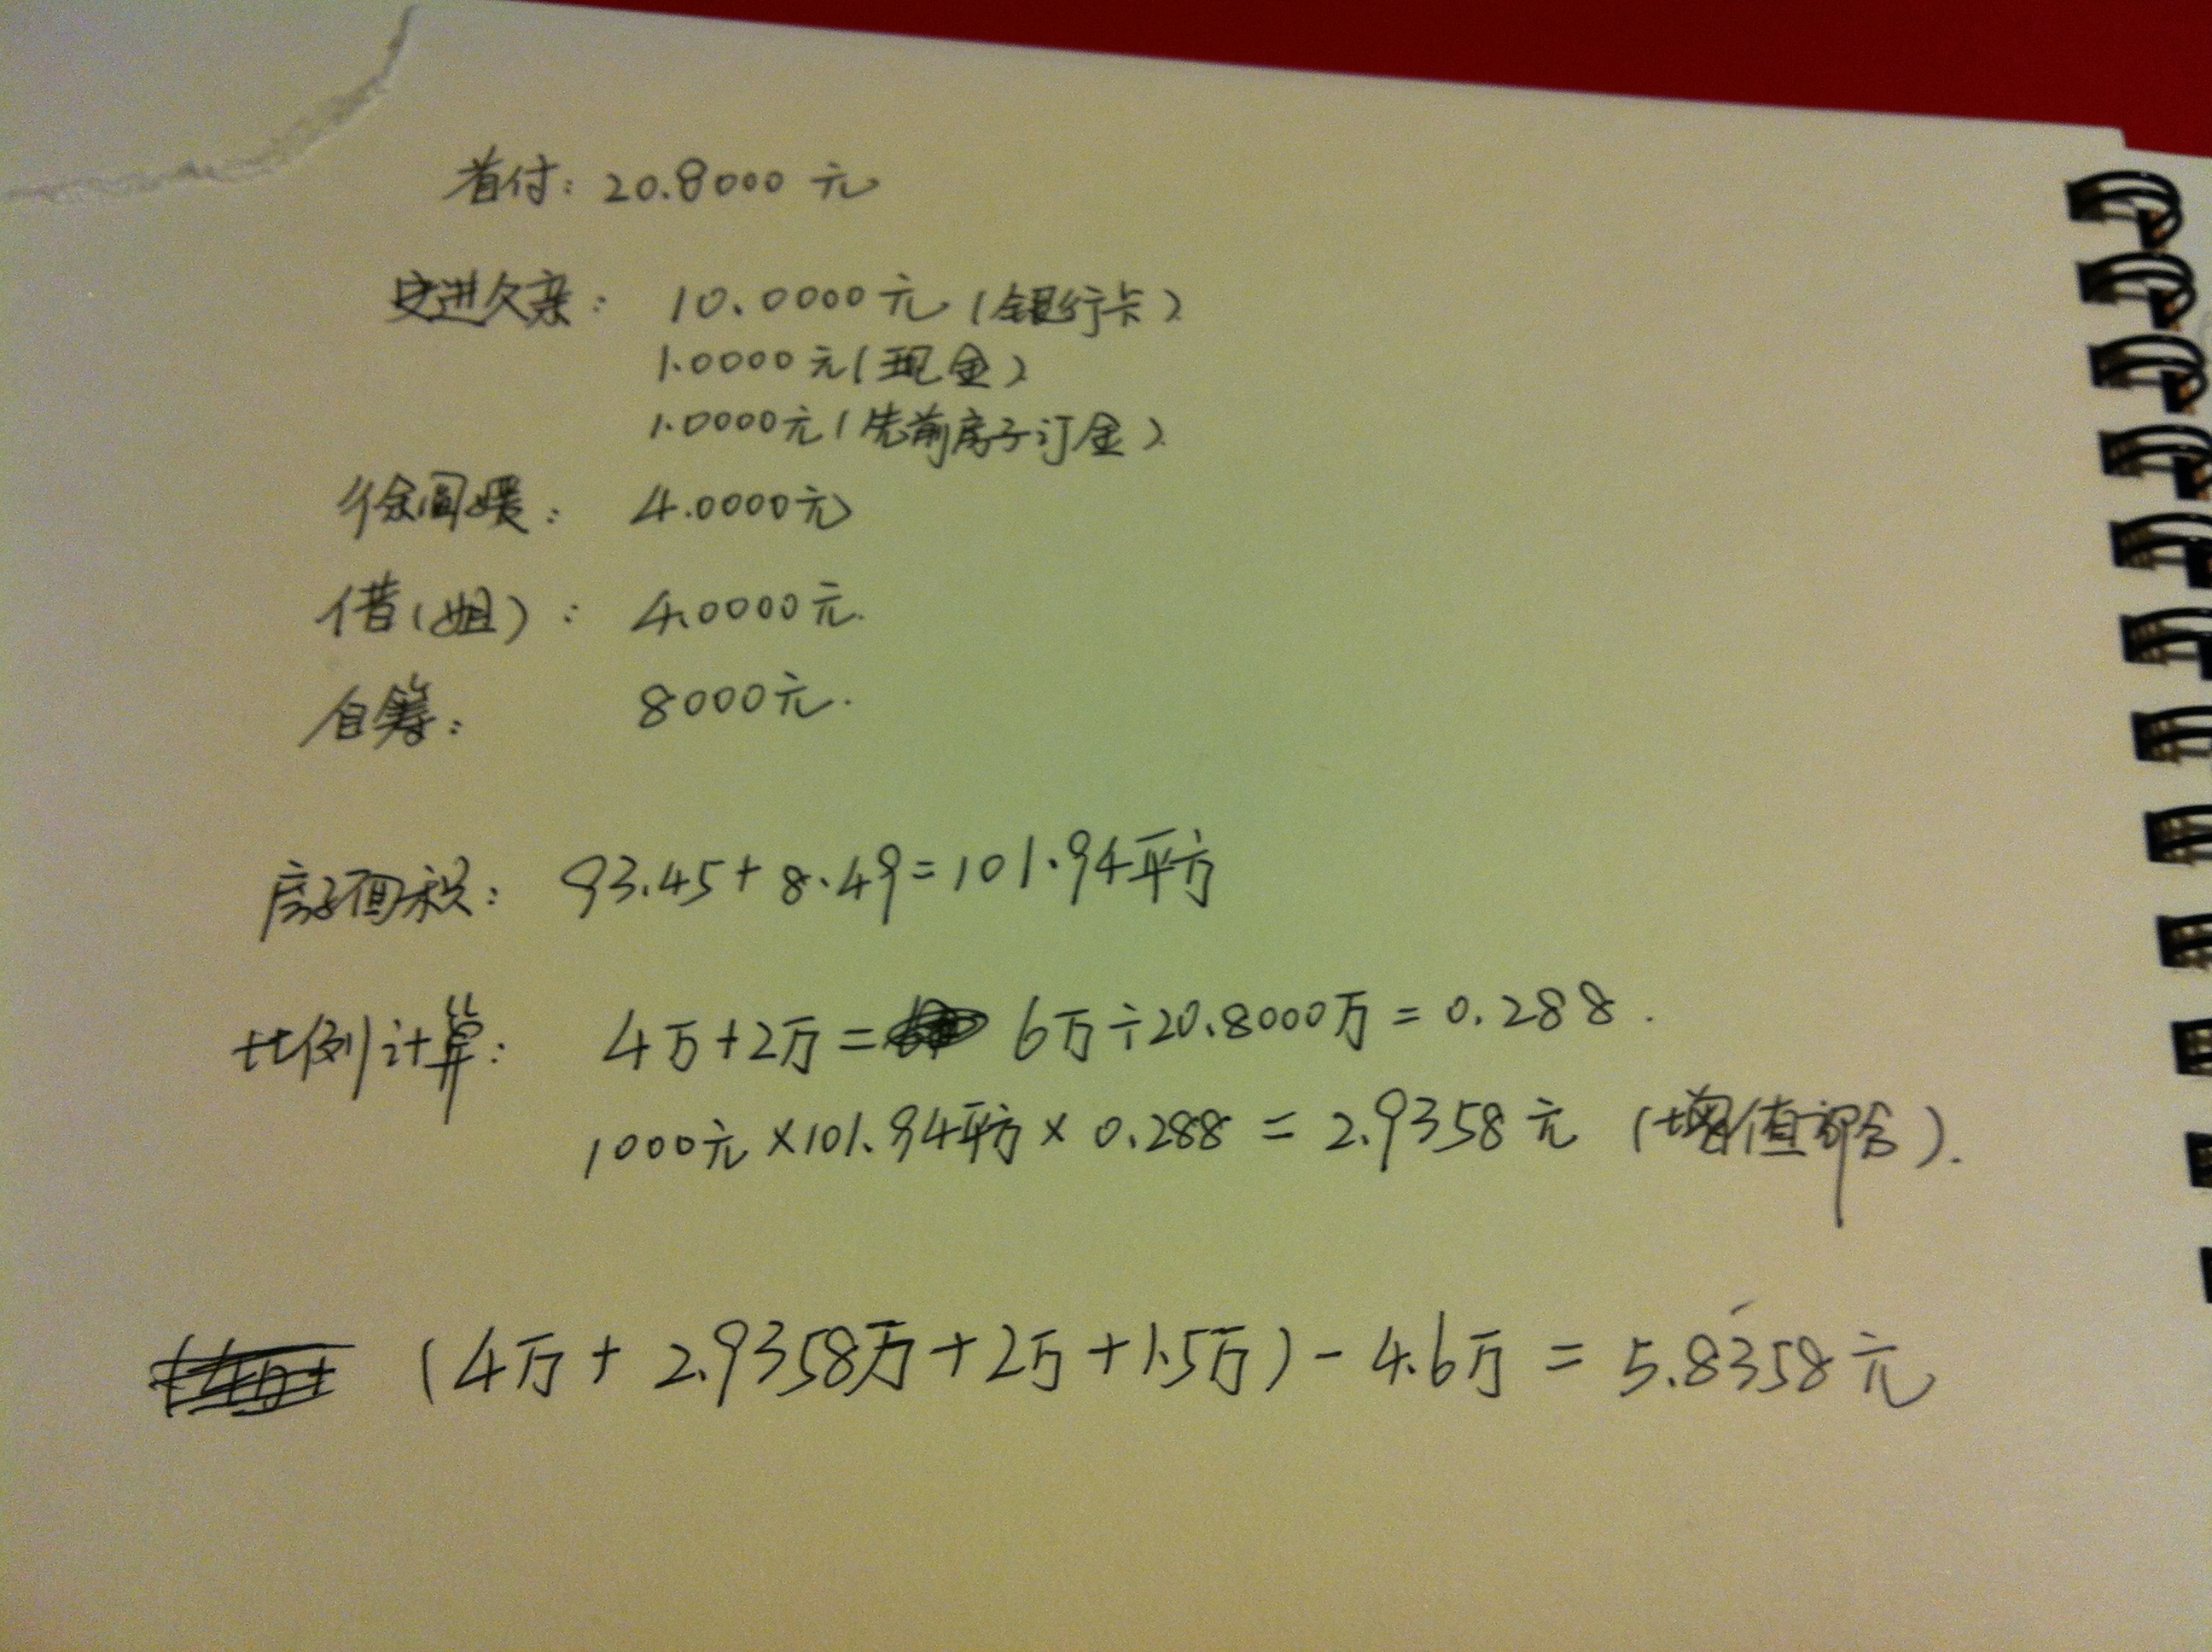 首付: 20.8000 元
史进父亲: 10.0000元(银行卡)
1.0000元(现金)
1.0000元(先前房子订金)
徐圆媛: 4.0000元
借(姐): 4.0000元.
自筹: 8000元.
房子面积: 93.45+8.49=101.94平方
比例计算: 4万+2万= 6万÷20.8000万=0.288.
1000元×101.94平方×0.288=2.9358元(增值部分).
(4万+2.9358万+2万+1.5万)-4.6万=5.8358元